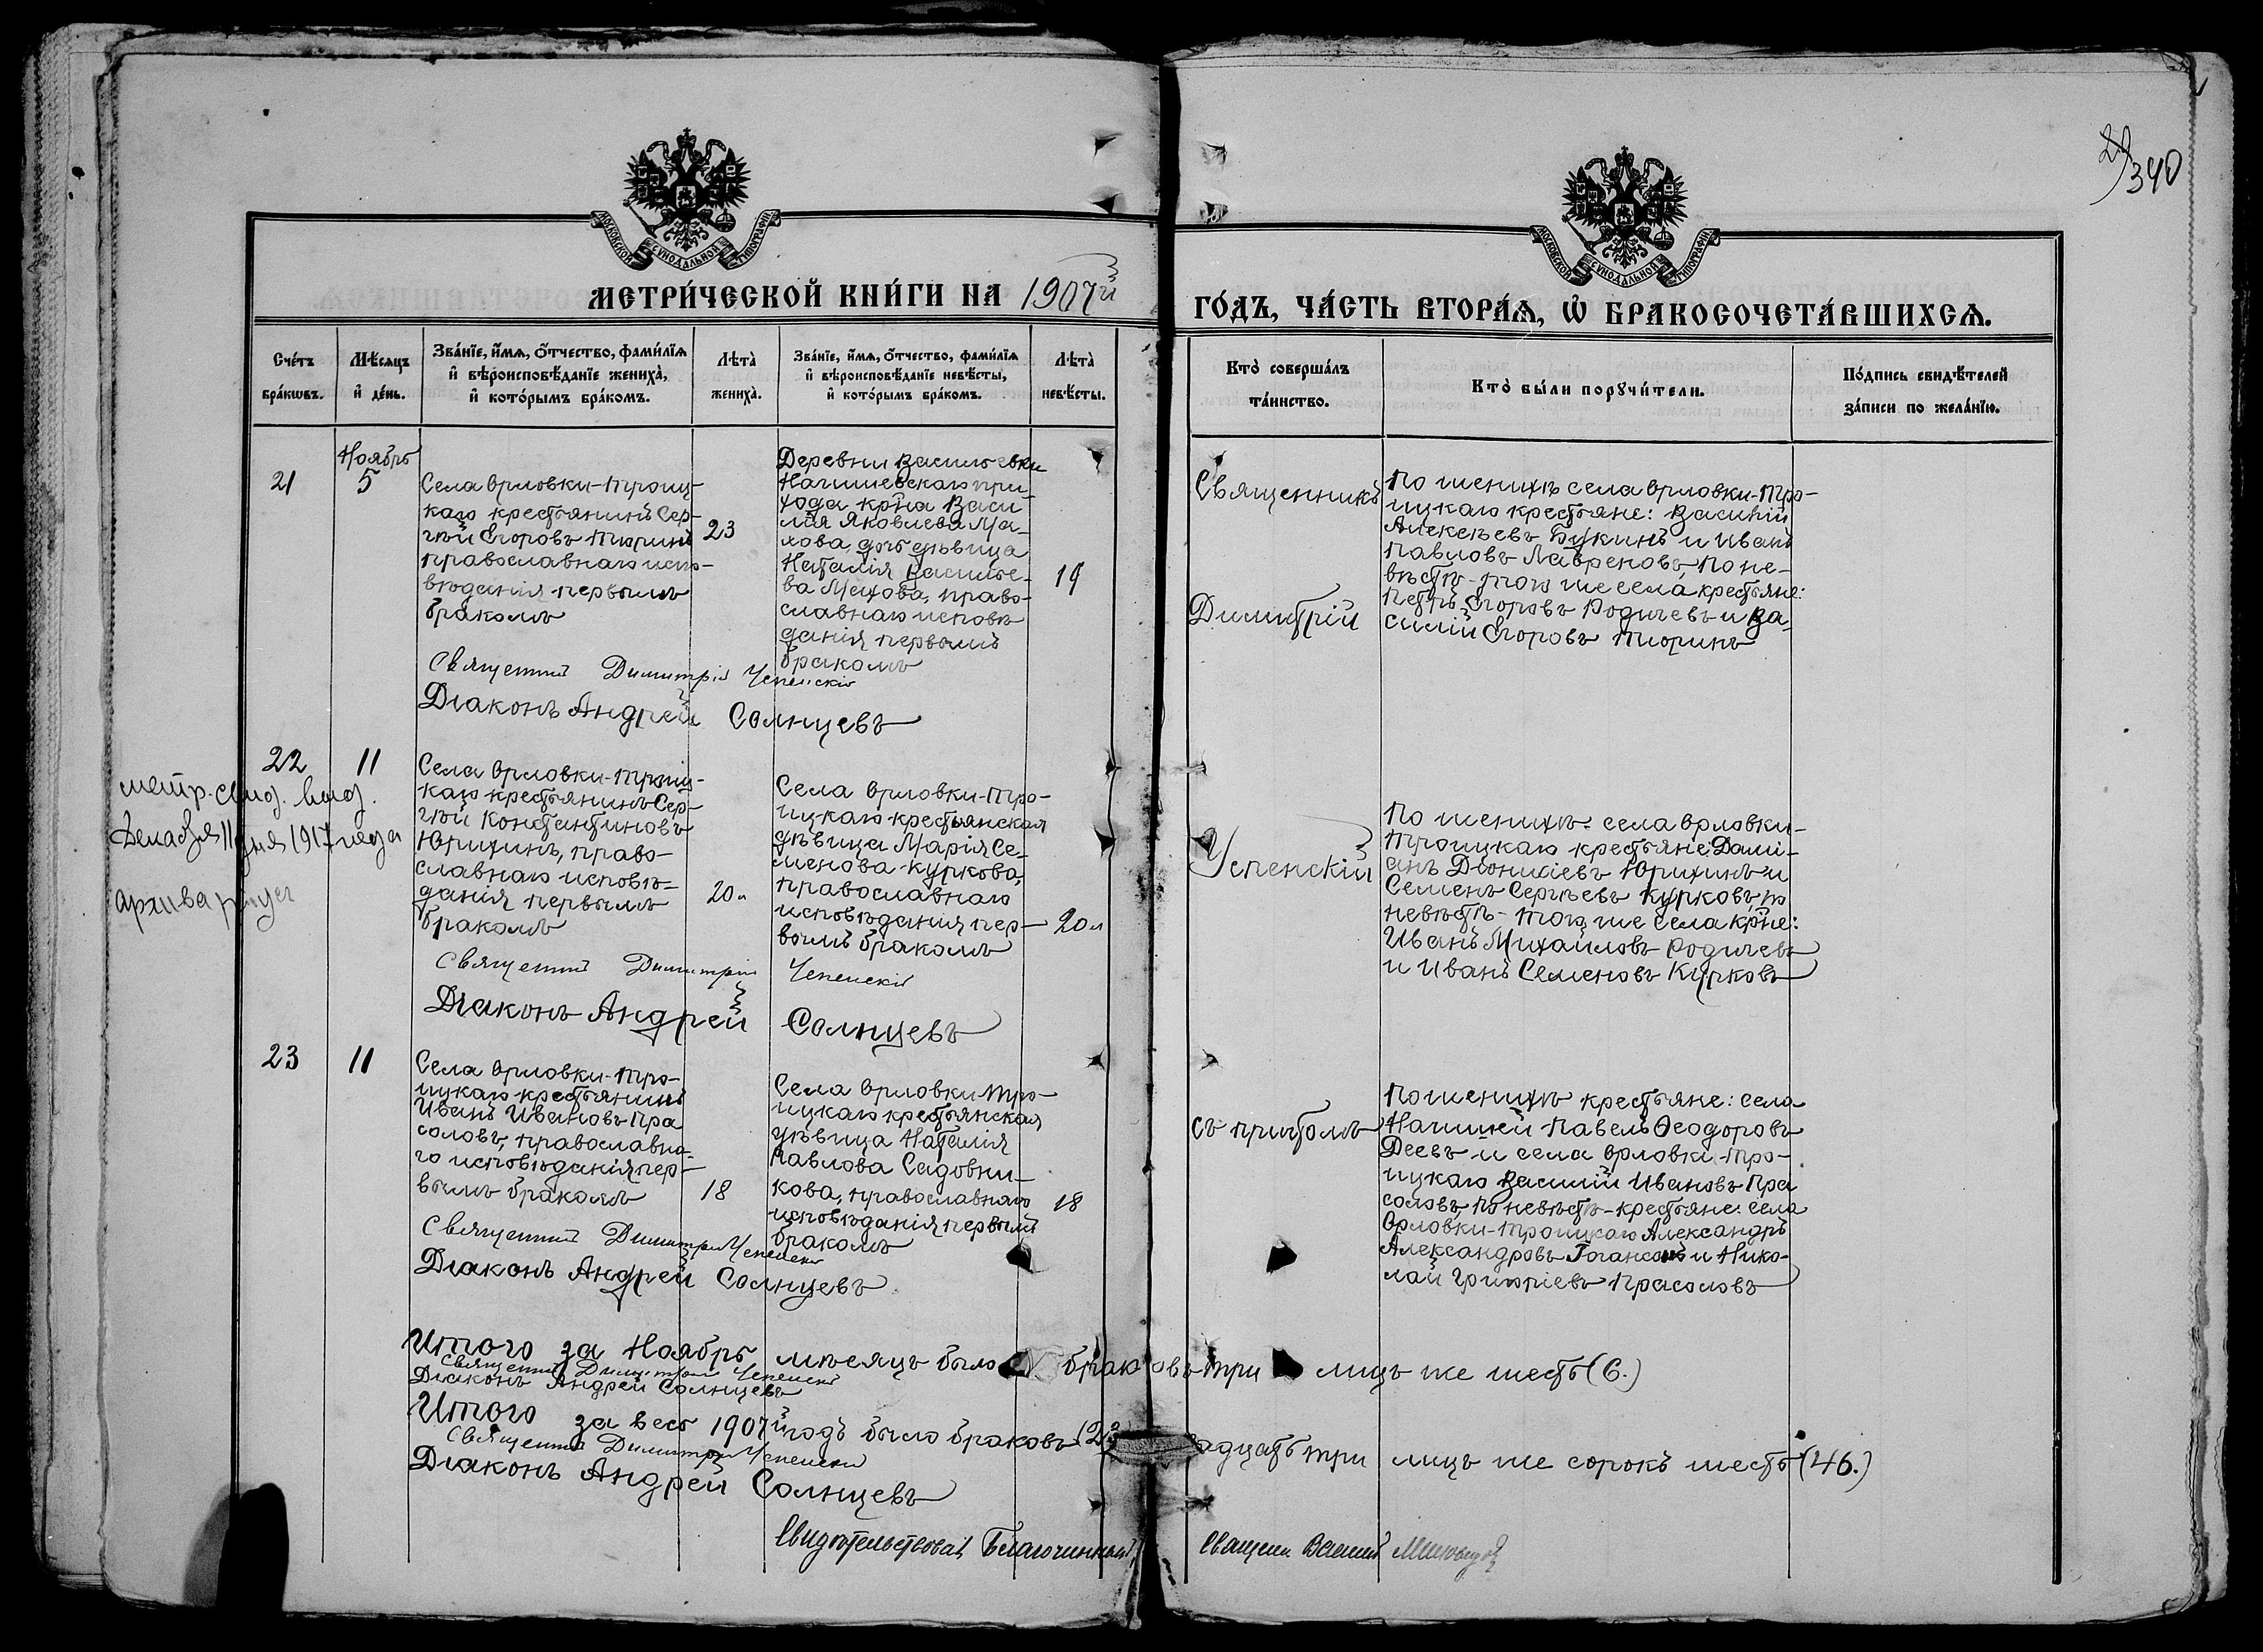 340
МОСКОВСКОЙ СУНОДАЛЬНОЙ ТИПОГРАФІИ
МОСКОВСКОЙ СУНОДАЛЬНОЙ ТИПОГРАФІИ
МЕТРИ́ЧЕСКОЙ КНИ́ГИ НА 1907й
ГО́ДЪ, ЧА́СТЬ ВТОРА́Ѧ, Ѡ БРАКОСОЧЕТА́ВШИХСѦ.
Сче́тъ бра́кѡвъ.
Мѣ́сяцъ и де́нь.
Зва́нїе, и́мѧ, ѻ́тчество, фами́лїѧ
и вѣроисповѣ́данїе жениха̀,
и кото́рымъ бра́комъ.
Лѣта̀ жениха̀.
Зва́нїе, и́мѧ, ѻ́тчество, фами́лїѧ
и вѣроисповѣ́данїе невѣ́сты,
и кото́рымъ бра́комъ.
Лѣта̀ невѣ́сты.
Кто̀ соверша́лъ
та́инство.
Кто̀ бы́ли порꙋчи́тели.
По́дпись свидѣ́телей
за́писи по жела́нїю.
21
Ноябрь
5
Села Орловки-Троиц-
каго крестьянинъ Сер-
гѣй Егоровъ Тюринъ
православнаго испо-
вѣданія первымъ
бракомъ
23
Деревни Васильевки
Нагишевскаго при-
хода кр-на Васи
лія Яковлева Ма-
хова, дочь дѣвица
Наталія Василье-
ва Махова, право-
славнаго исповѣ
данія первымъ
бракомъ
19
Священникъ
Димитрій
По женихѣ села Орловки-Тро-
ицкаго крестьяне: Василій
Алексѣевъ Букинъ и Иванъ
Павловъ Лавреновъ, по не-
вѣстѣ - того же села крестьяне:
Петръ Егоровъ Родичевъ и Ва-
силій Егоровъ Тюринъ
Священникъ Димитрій Успенскій
Діаконъ Андрей Солнцевъ
22
11
метр. свид. выд.
Декабря 11 дня 1917 года
Села Орловки-Троиц-
каго крестьянинъ Сер-
гѣй Константиновъ
Юрихинъ, право-
славнаго исповѣ-
данія первымъ
бракомъ
20 л
Села Орловки-Тро-
ицкаго крестьянская
дѣвица Марія Се-
менова Куркова,
православнаго
исповѣданія пер-
вымъ бракомъ
20 л
Успенскій
По женихѣ: села Орловки-
Троицкаго крестьяне: Дамі-
анъ Діонисіевъ Юрихинъ и
Семенъ Сергѣевъ Курковъ, по
невѣстѣ - того же села кр-не:
Иванъ Михайловъ Родичевъ
и Иванъ Семеновъ Курковъ
Священникъ Димитрій Успенскій
Діаконъ Андрей Солнцевъ
23
11
Села Орловки-Тро-
ицкаго крестьянинъ
Иванъ Ивановъ Пра
соловъ, православна-
го исповѣданія пер-
вымъ бракомъ
18
Села Орловки Тро-
ицкаго крестьянская
дѣвица Наталія
Павлова Садовни-
кова, православнаго
исповѣданія первымъ
бракомъ
18
съ причтомъ
По женихѣ крестьяне: села
Нагишей Павелъ Ѳеодоровъ
Деевъ и села Орловки-Тро-
ицкаго Василій Ивановъ Пра
соловъ, по невѣстѣ - крестьяне: села
Орловки-Троицкаго Александръ
Александровъ и Нико-
лай Григоріевъ Прасоловъ
Священникъ Димитрій Успенскій
Діаконъ Андрей Солнцевъ
Итого за Ноябрь мѣсяцъ было браковъ три лицъ же шесть (6.)
Священникъ Димитрій Успенскій
Діаконъ Андрей Солнцевъ
Итого за весь 1907й годъ было браковъ (23 адцать три лицъ же сорокъ шесть (46.)
Священникъ Димитрій Успенскій
Діаконъ Андрей Солнцевъ
Свидѣтельствовалъ Благочинный, Священ. Василій